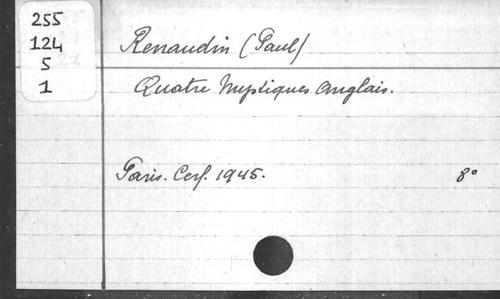 255
124
5
1
Renaudin (Paul)
Quatre Mystiques anglais.
Paris. Cerf. 1945. 8°